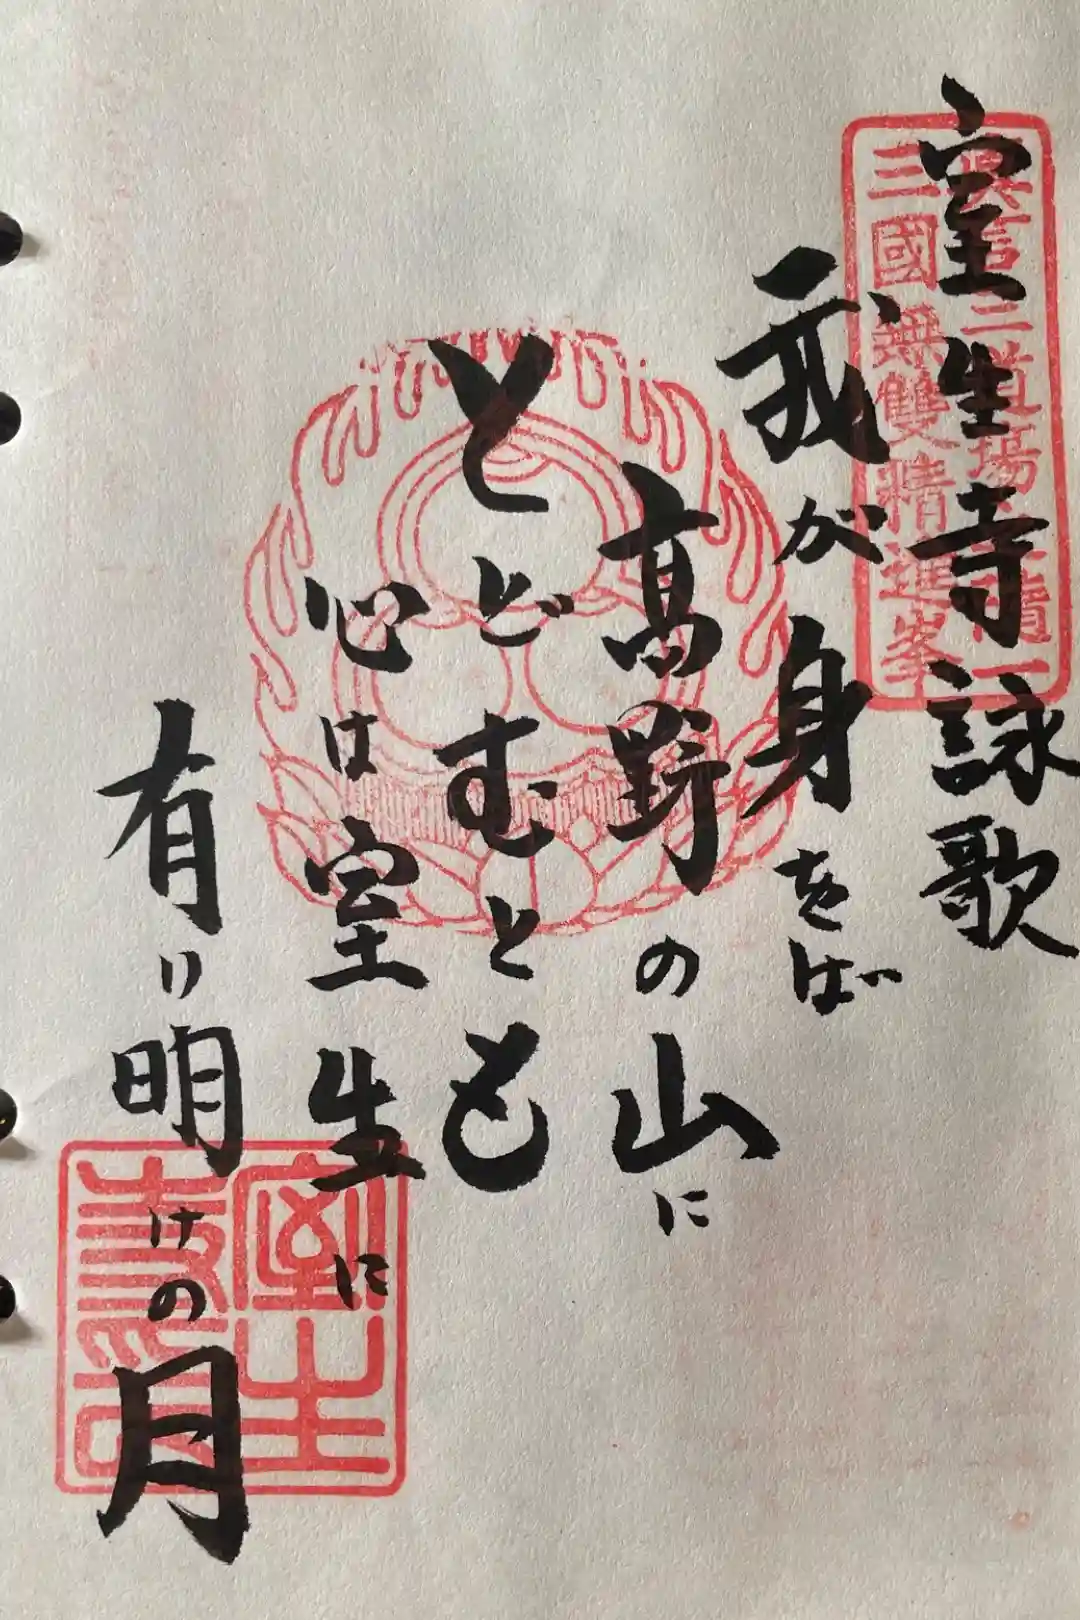 室生寺詠歌
我が身をば
高野の山に
とどむとも
心は室生に
有り明けの月
三國無雙精進峯
室生
寺印